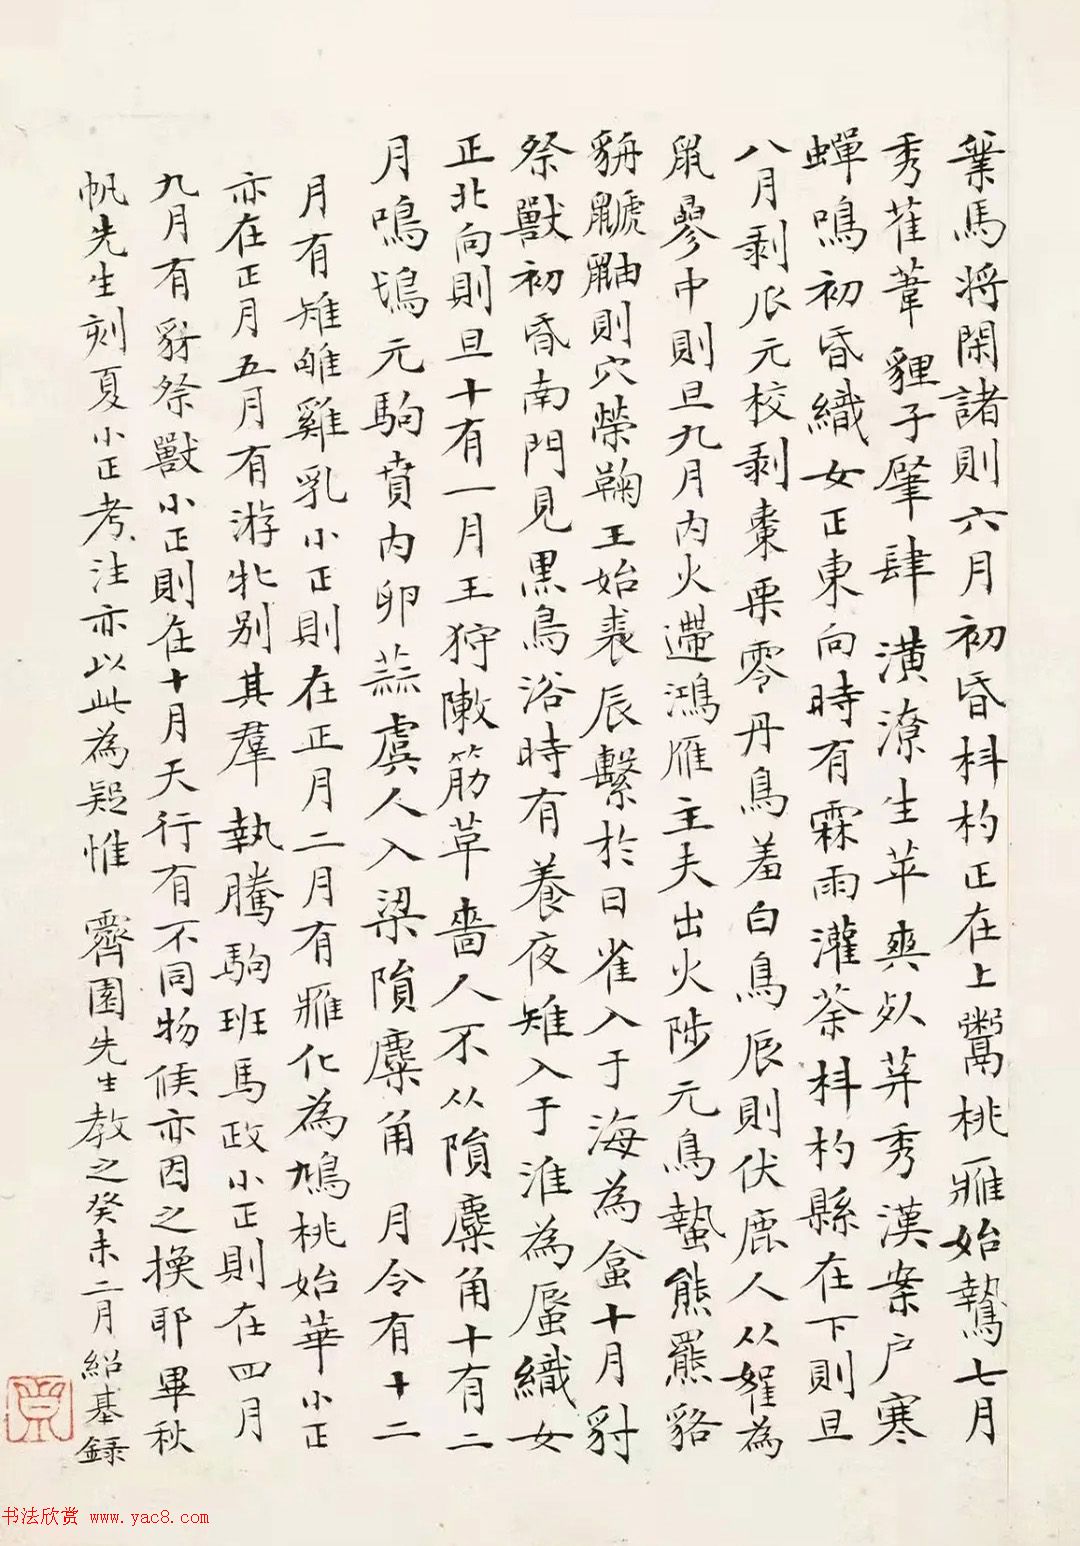 業馬將閑諸則六月初昏枓杓正在上鬻桃鴈始鷙七月
秀雚葦貍子肇肆潢潦生苹爽死荓秀漢案户寒
蟬鳴初昏織女正東向時有霖雨灌荼枓杓縣在下則旦
八月剥瓜元校剥棗栗零丹鳥羞白鳥辰則伏鹿人从爲
鼠參中則旦九月内火遰鴻雁主夫出火陟元鳥蟄熊羆貉
貈鼶鼬則穴榮鞠王始裘辰繫於日雀入于海為盒十月豺
祭獸初昏南門見黑鳥浴時有養夜雉入于淮為蜃織女
正北向則旦十有一月王狩敶筋革嗇人不从隕麋角十有二
月鳴鳩元駒賁内卵蒜虞人入梁隕麋角 月令有十二
月有雉雊雞乳小正則在正月二月有鷹化為鳩桃始華小正
亦在正月五月有游牝别其羣執騰駒班馬政小正則在四月
九月有豺祭獸小正則在十月天行有不同物候亦因之換耶畢秋
帆先生刻夏小正考注亦以此為疑惟 霽園先生教之癸未二月紹基録
书法欣赏 www.yac8.com